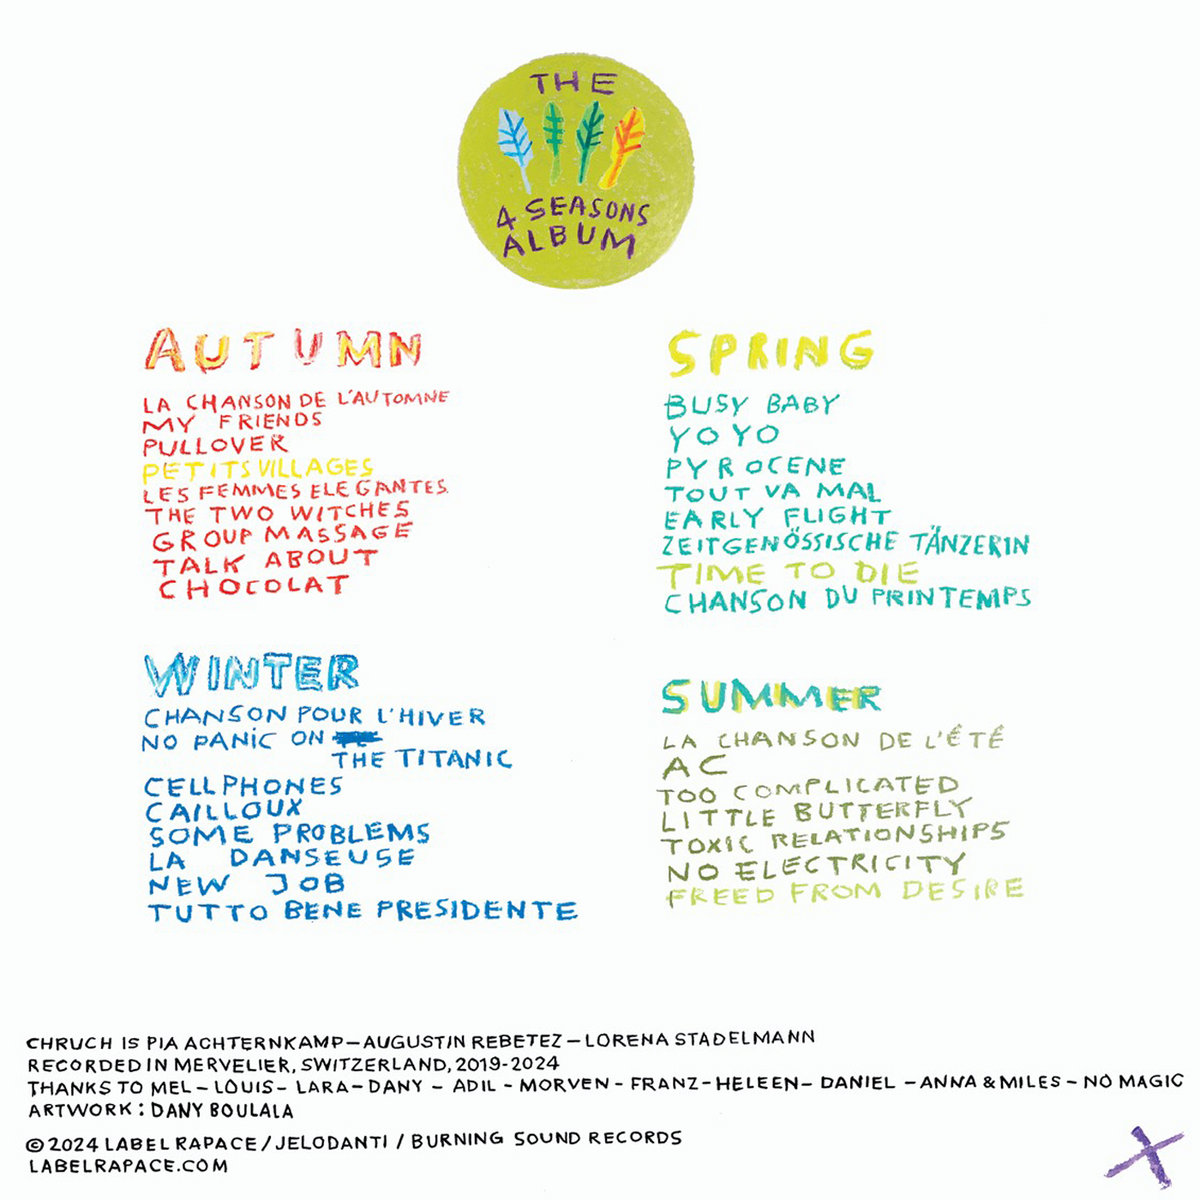 THE
4 SEASONS
ALBUM
AUTUMN
LA CHANSON DE L'AUTOMNE
MY FRIENDS
PULLOVER
PETITS VILLAGES
LES FEMMES ELEGANTES
THE TWO WITCHES
GROUP MASSAGE
TALK ABOUT
CHOCOLAT
WINTER
CHANSON POUR L'HIVER
NO PANIC ON
THE TITANIC
CELLPHONES
CAILLOUX
SOME PROBLEMS
LA DANSEUSE
NEW JOB
TUTTO BENE PRESIDENTE
SPRING
BUSY BABY
YOYO
PYROCENE
TOUT VA MAL
EARLY FLIGHT
ZEITGENÖSSISCHE TÄNZERIN
TIME TO DIE
CHANSON DU PRINTEMPS
SUMMER
LA CHANSON DE L'ÉTÉ
AC
TOO COMPLICATED
LITTLE BUTTERFLY
TOXIC RELATIONSHIPS
NO ELECTRICITY
FREED FROM DESIRE
CHRUCH IS PIA ACHTERNKAMP-AUGUSTIN REBETEZ-LORENA STADELMANN
RECORDED IN MERVELIER, SWITZERLAND, 2019-2024
THANKS TO MEL-LOUIS-LARA-DANY-ADIL-MORVEN-FRANZ-HELEEN-DANIEL-ANNA & MILES-NO MAGIC
ARTWORK: DANY BOULALA
©2024 LABEL RAPACE/JELODANTI/BURNING SOUND RECORDS
LABELRAPACE.COM